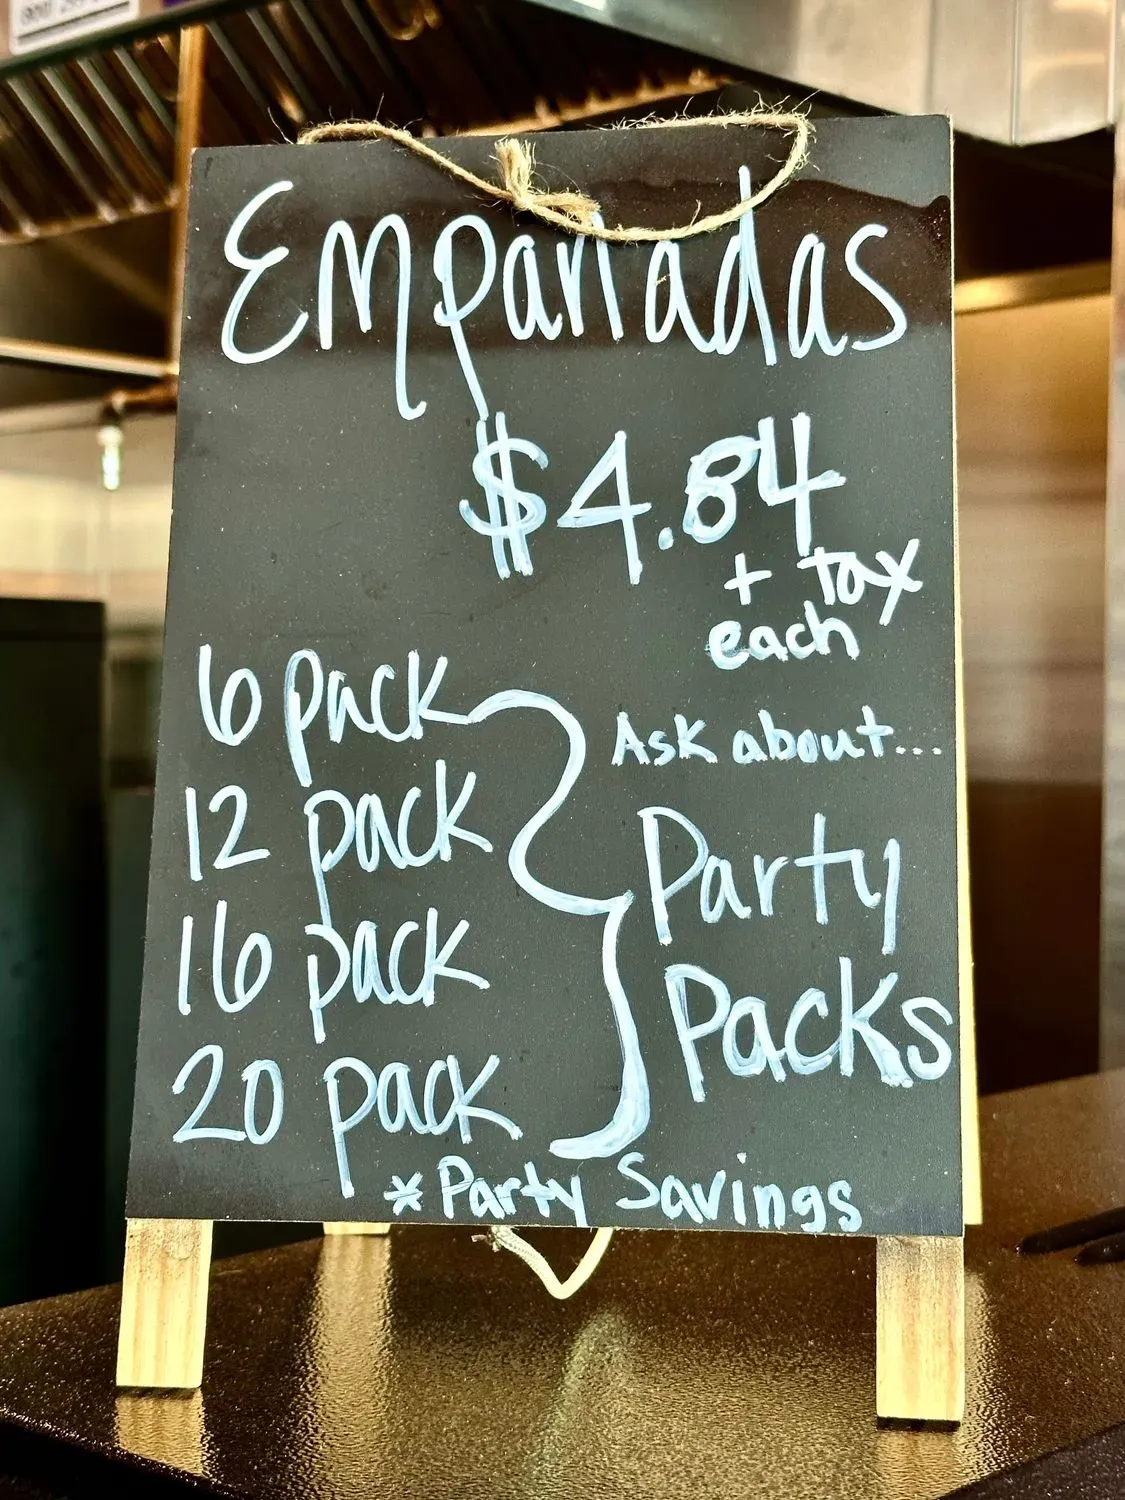 Empanadas
$4.84
+ tax
each
6 pack
12 pack
16 pack
20 pack
Ask about...
Party
Packs
* Party Savings